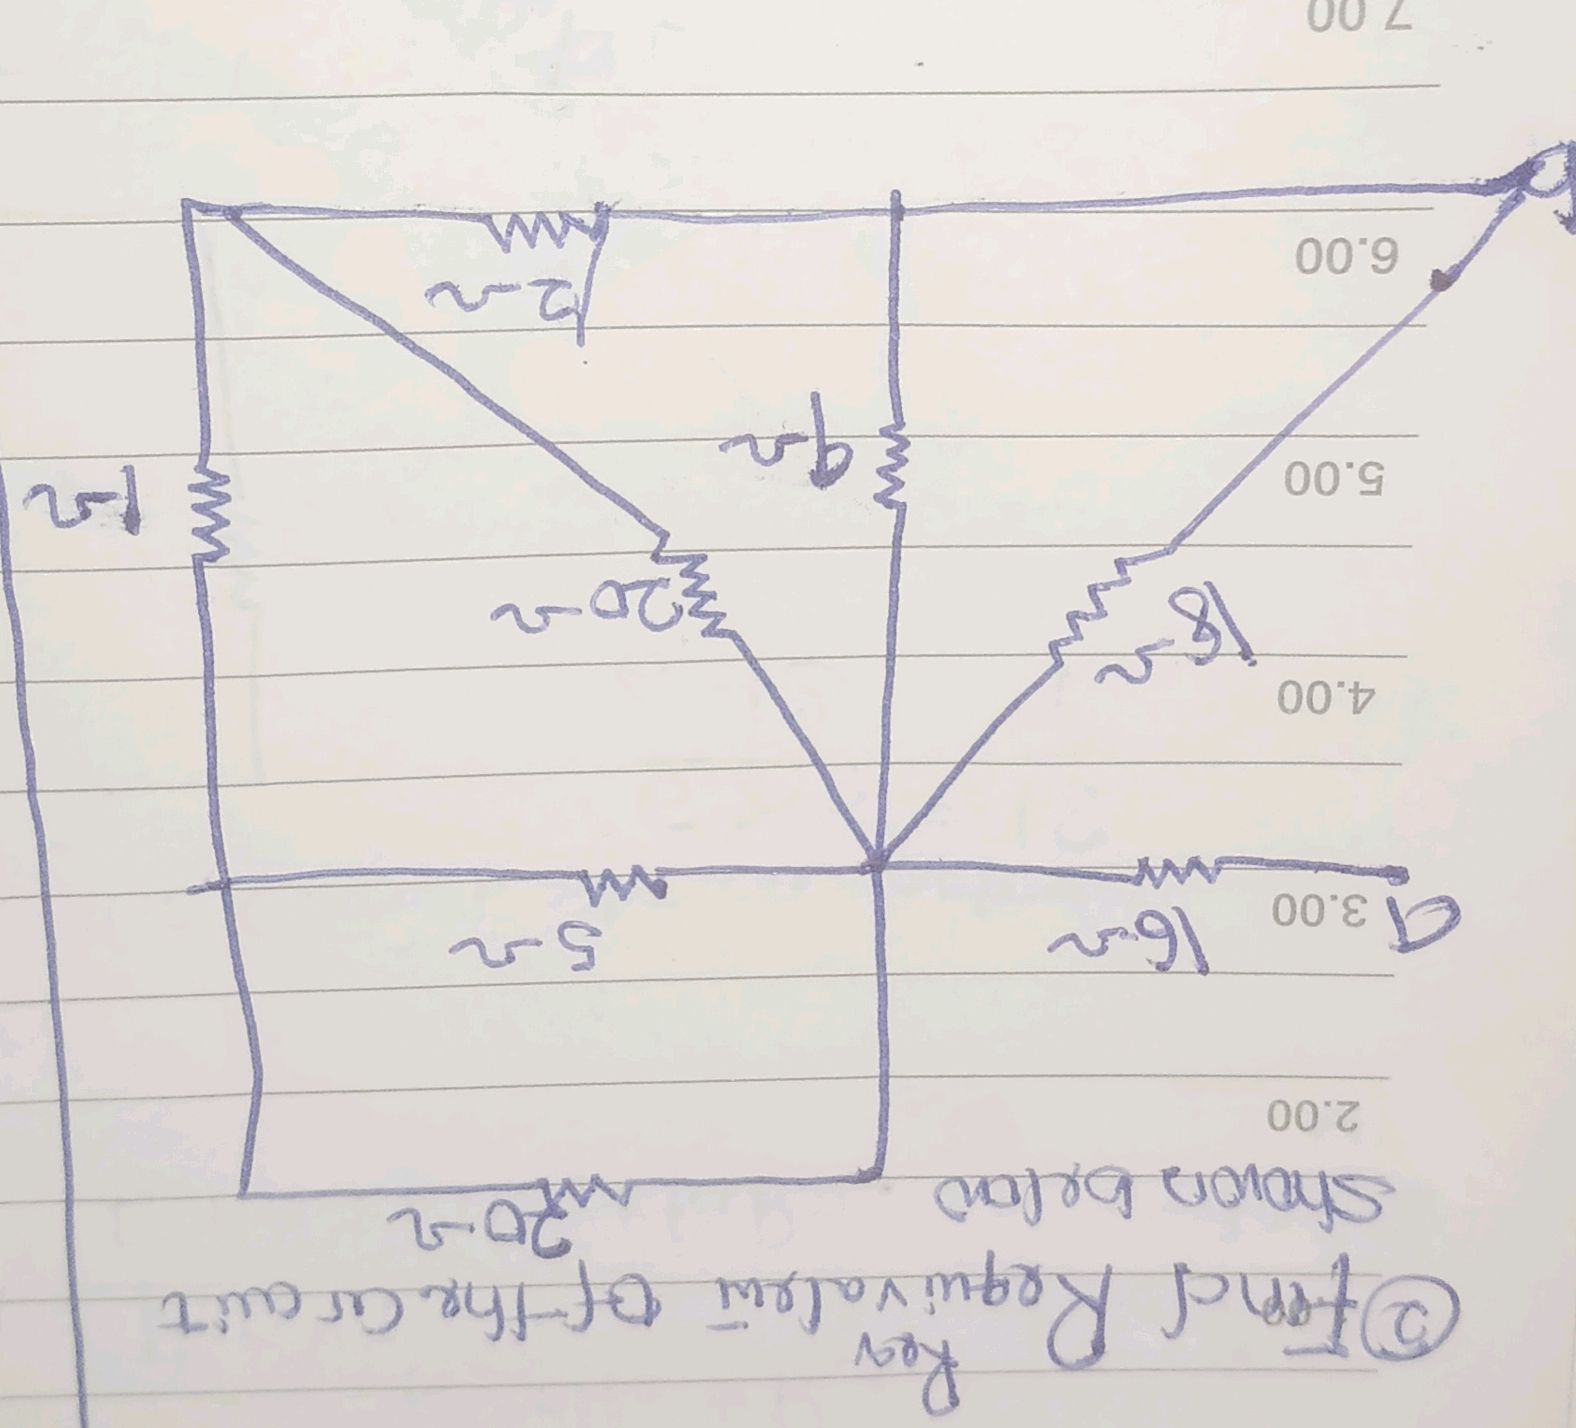 Req
② Find Requivalent Of the Circuit
shown below
20Ω
2.00
a
3.00
16Ω
5Ω
4.00
18Ω
20Ω
5.00
9Ω
1Ω
6.00
12Ω
b
7.00